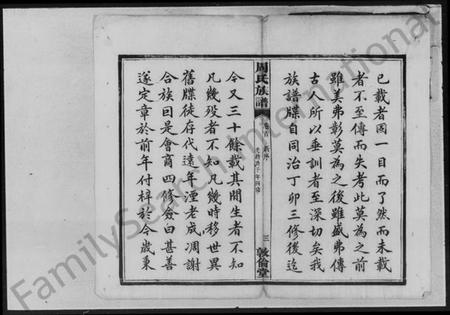 已載者固一目而了然而未載
者不至傳而失考此莫為之前
雖美弗彰莫為之後雖盛弗傳
古人所以垂訓者至深切矣我
族譜牒自同治丁卯三修後迄
周氏族譜
新序
三
敦倫堂
今又三十餘載其間生者不知
凡幾歿者不知凡幾時移世異
舊牒徒存代遠年湮老成凋謝
合族曰是會商四修僉曰甚善
遂定章於前年付梓於今歲東
FamilySearch International